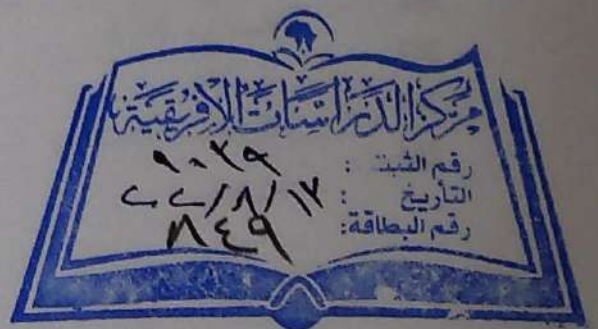 مركز الدراسات الإفريقية
رقم الثبت : ٩٠٣٩
التأريخ : ١٣/٨/٢٢
رقم البطاقة: ٨٤٩